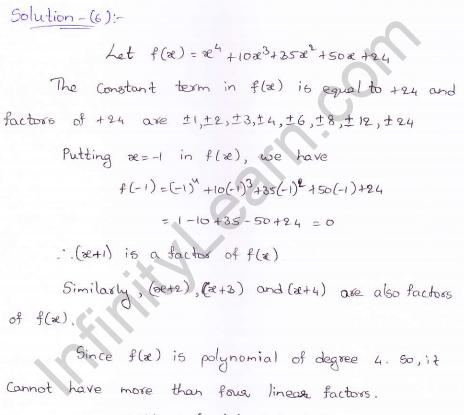 Solution-(6):-
Let f(x) = x⁴ +10x³+35x²+50x+24
The constant term in f(x) is equal to +24 and
factors of +24 are ±1,±2,±3,±4,±6,±8,±12,±24
Putting x=-1 in f(x), we have
f(-1)=(-1)⁴ +10(-1)³+35(-1)²+50(-1)+24
= 1-10+35-50+24 = 0
∴(x+1) is a factor of f(x)
Similarly, (x+2), (x+3) and (x+4) are also factors
of f(x).
Since f(x) is polynomial of degree 4. So, it
cannot have more than four linear factors.
InfinityLearn.com